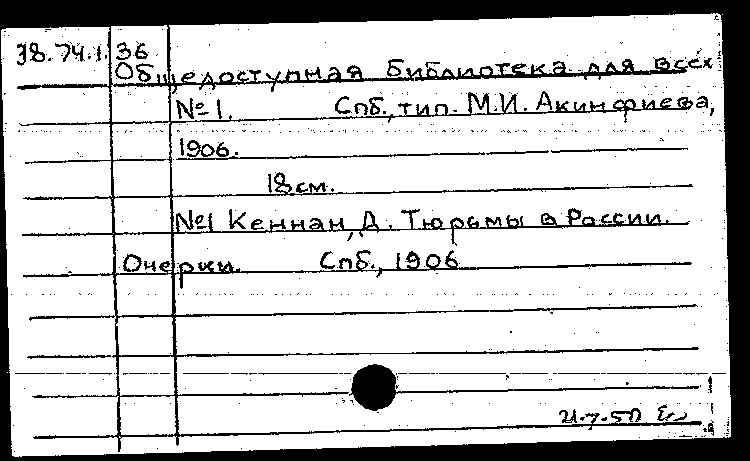 38.74.1.36
Общедоступная библиотека для всех
№1. Спб., тип. М.И. Акинфиева,
1906.
18см.
№1 Кеннан, Д. Тюрьмы в России.
Очерки. Спб., 1906
21.7.50